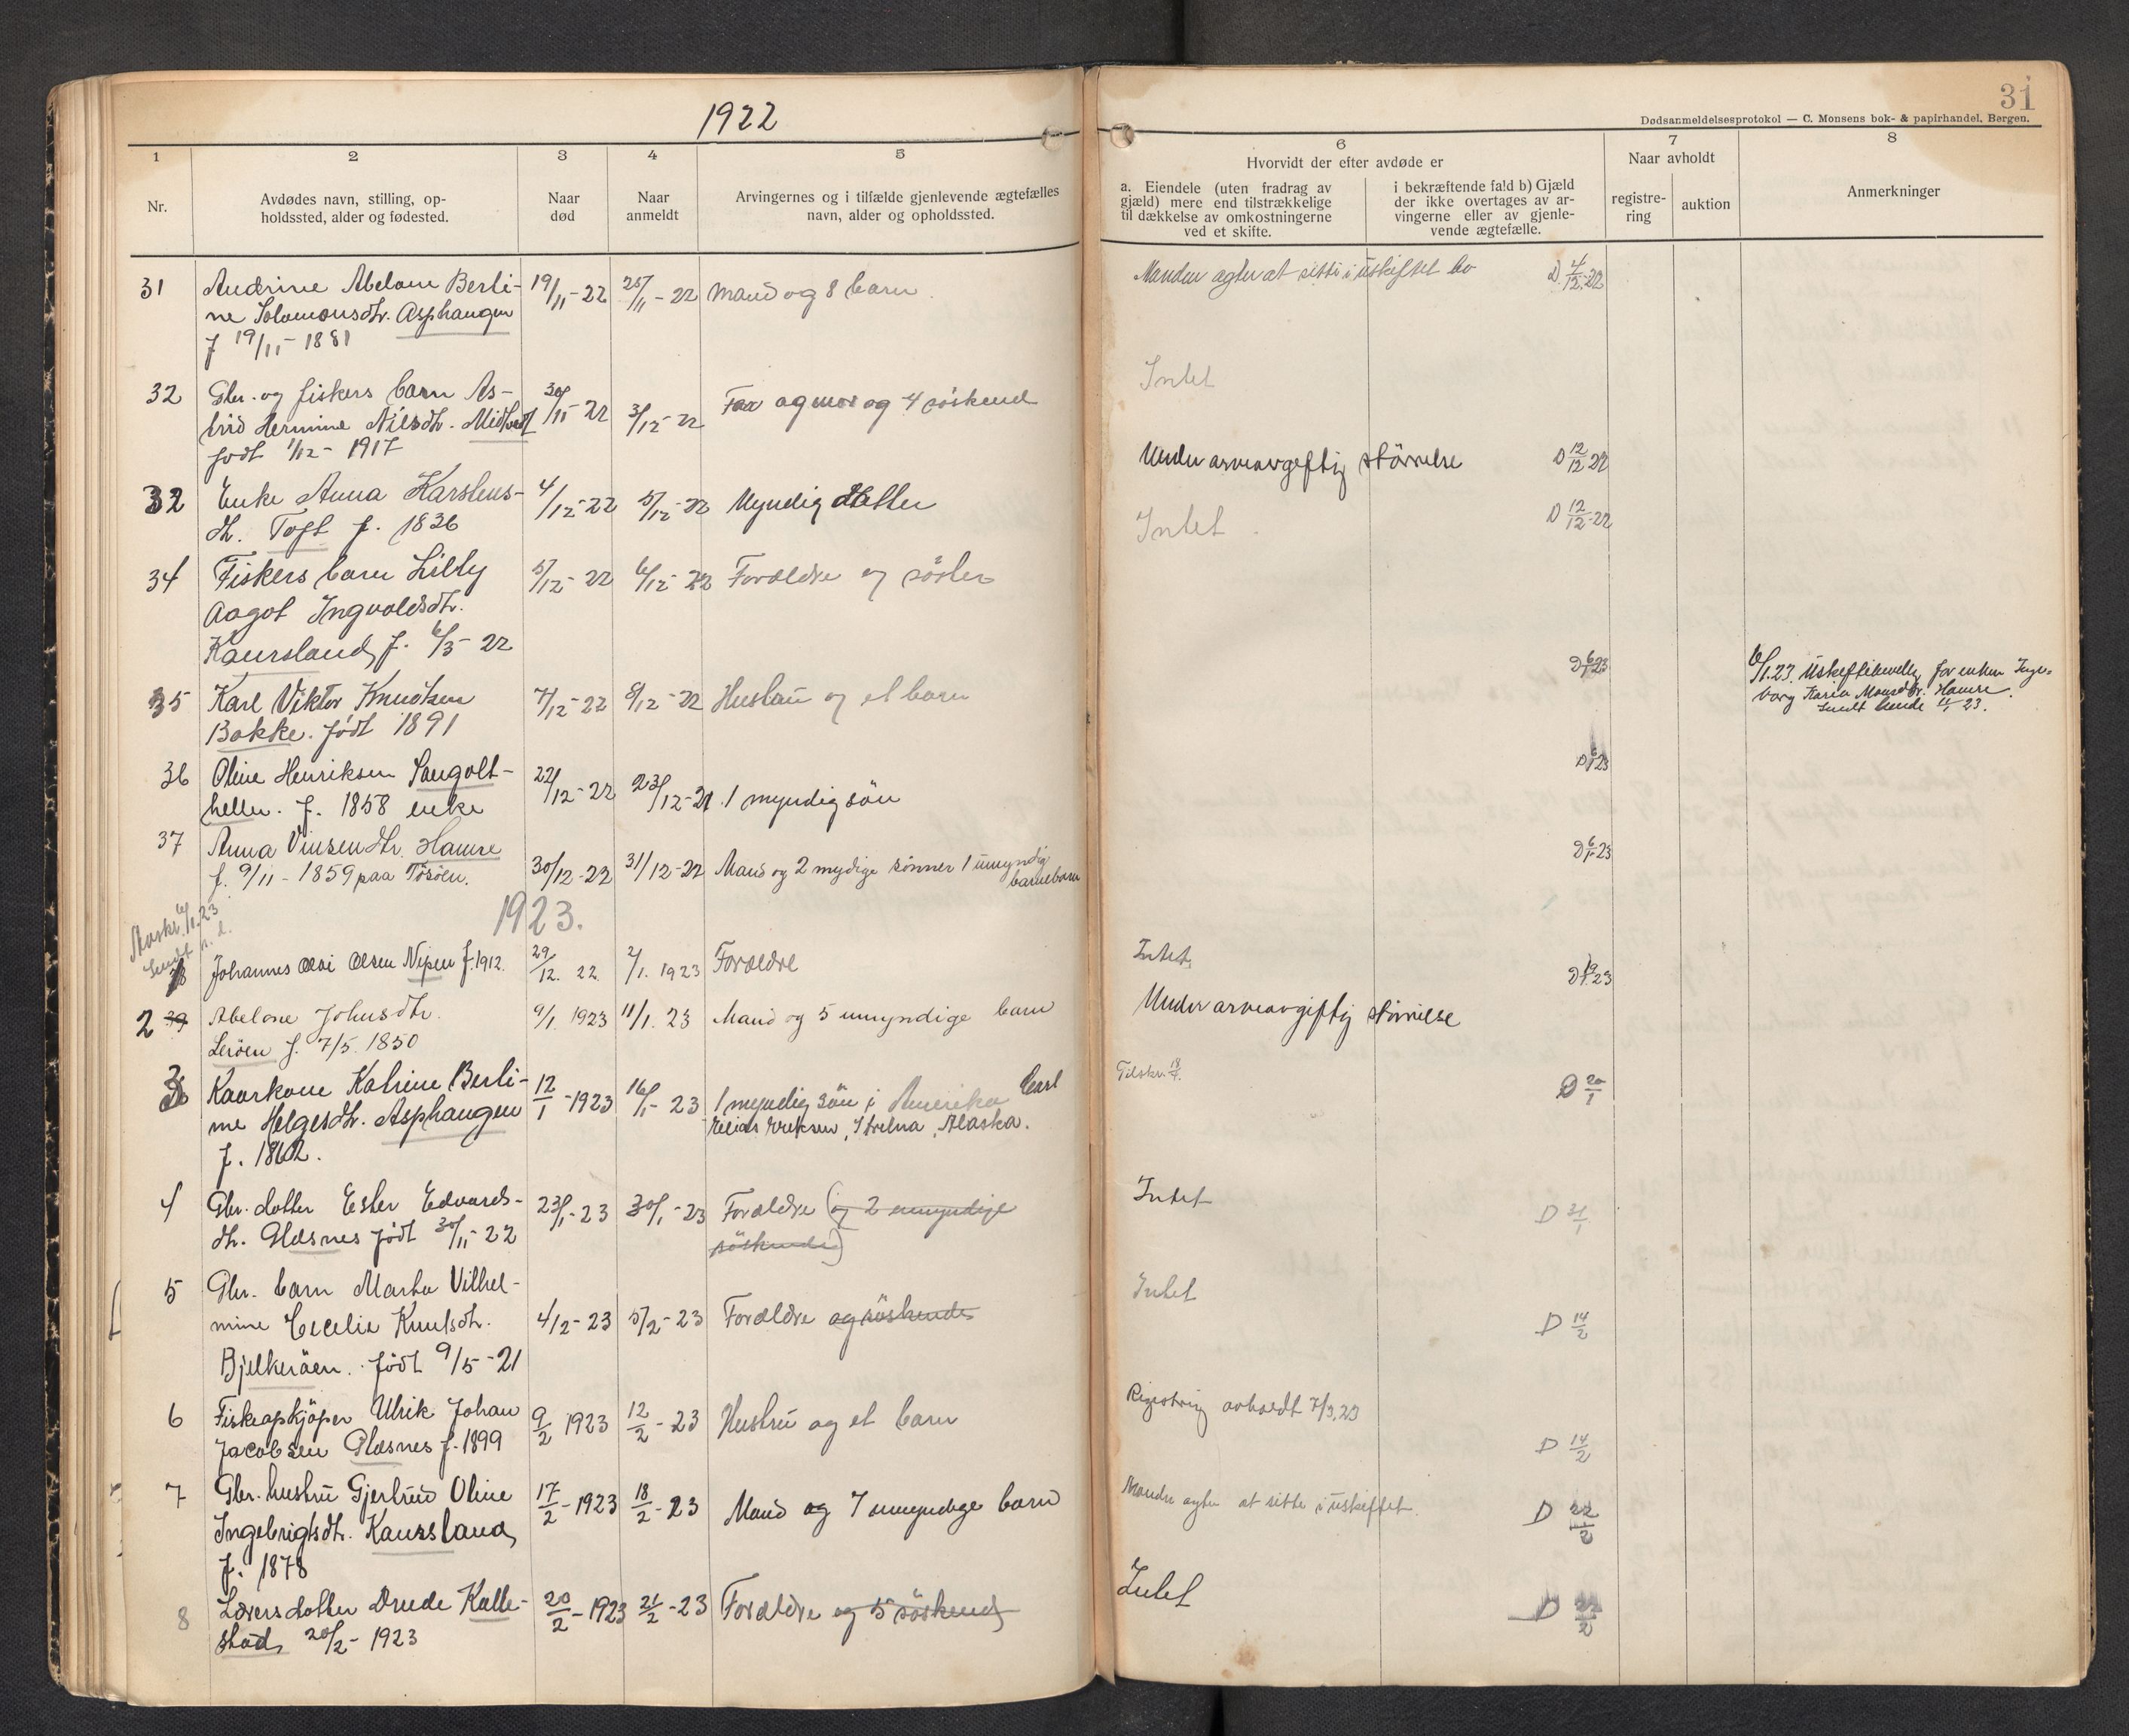 1922
31
Dødsanmeldelsesprotokol — C. Monsens bok- & papirhandel, Bergen.
1
2
3
4
5
6
7
8
Nr.
Avdødes navn, stilling, op-
holdssted, alder og fødested.
Naar
død
Naar
anmeldt
Arvingernes og i tilfælde gjenlevende ægtefælles
navn, alder og opholdssted.
Hvorvidt der efter avdøde er
a. Eiendele (uten fradrag av
gjæld) mere end tilstrækkelige
til dækkelse av omkostningerne
ved et skifte.
i bekræftende fald b) Gjæld
der ikke overtages av ar-
vingerne eller av gjenle-
vende ægtefælle.
Naar avholdt
registre-
ring
auktion
Anmerkninger
31
Andrine Abelone Berti-
ne Solomonsdtr. Asphaugen
f 19/11 - 1881
19/11 - 22
25/11 - 22
Mand og 8 barn
Manden agter at sitte i uskiftet bo
D 4/12-22
32
Gbr. og fiskers barn As-
trid Hermine Nilsdtr. Midtvedt
født 1/12 - 1917
30/11 - 22
3/12 - 22
Far og mor og 4 söskend
Intet
32
Enke Anna Karstens-
dtr. Toft f. 1836
4/12 - 22
5/12 - 22
Myndig datter
Under arveavgiftig störrelse
D 12/12 22
34
Fiskers barn Lilly
Aagot Ingvoldsdtr.
Kaursland f. 6/3 - 22
5/12 - 22
6/12 - 22
Forældre og söster
Intet
D 12/12-22
35
Karl Viktor Knudsen
Bakke. født 1891
7/12 - 22
9/12 - 22
Hustru og et barn
D 6/1 23
6/1.23. Uskiftebevilg for enken Inge-
borg Karia Monsdtr. Hamre.
Sendt hende 11/1 23.
36
Oline Henriksen Sangolt-
hellen. f. 1858 enke
22/12 - 22
23/12 - 21
1 myndig sön
D 6/1 23
37
Anna Vinsensdtr. Hamre
f. 9/11 - 1859 paa Tösöen.
30/12 - 22
31/12 - 22
Mand og 2 mydige sönner 1 umyndig
barnebarn
D 6/1 23
1923.
6/1.23
Johannes Olai Olsen Nipen f. 1912.
29/12. 22.
2/1. 1923
Forældre
Intet
D 19/1 23
2 39
Abelone Johnsdtr.
Leröen f. 7/5. 1850
9/1 1923
11/1. 23
Mand og 5 umyndige barn
Under arveavgiftig störrelse
3
Kaarkone Katrine Berti-
ne Helgesdtr. Asphaugen
f. 1862.
12/1 - 1923
16/1 - 23
1 myndig sön i Amerika Carl
Elias Eriksen, Strelna, Alaska.
Tilskr.
D 20/1
4
Gbr. datter Ester Edvards-
dtr. Glæsnes født 30/11 - 22
23/1 - 23
30/1 - 23
Forældre (og 2 umyndige
söskende)
Intet
D 31/1
5
Gbr. barn Marta Vilhel-
mine Cecelie Knutsdtr.
Bjelkeröen. født 9/5 - 21
4/2 - 23
5/2 - 23
Forældre og söskende
Intet
D 14/2
6
Fiskeopkjöper Ulrik Johan
Jacobsen Glæsnes f. 1899
9/2 1923
12/2 - 23
Hustru og et barn
Rigestrig avholdt 7/3.23
D 14/2
7
Gbr. hustru Gjertrud Oline
Ingebrigtsdtr. Kaursland
f. 1878
17/2 - 1923
18/2 - 23
Mand og 7 umyndige barn
Manden agter at sitte i uskiftet
D 22/2
8
Lærers datter Drude Kalle-
stad, 20/2 - 1923
20/2 - 1923
21/2 - 23
Forældre og 5 söskend
Intet
D 22/2